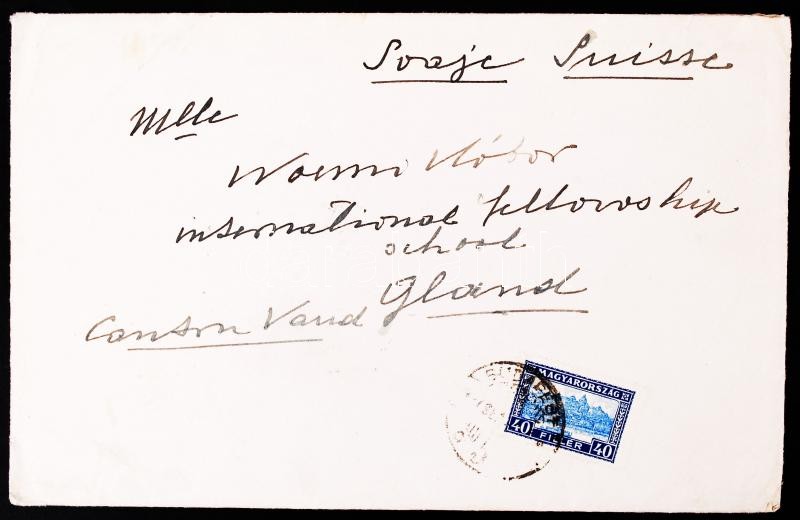 Svajc Suisse
Mlle
Noemi
international fellowship
school
Gland
Canton Vaud
MAGYARORSZÁG
40 FILLÉR 40